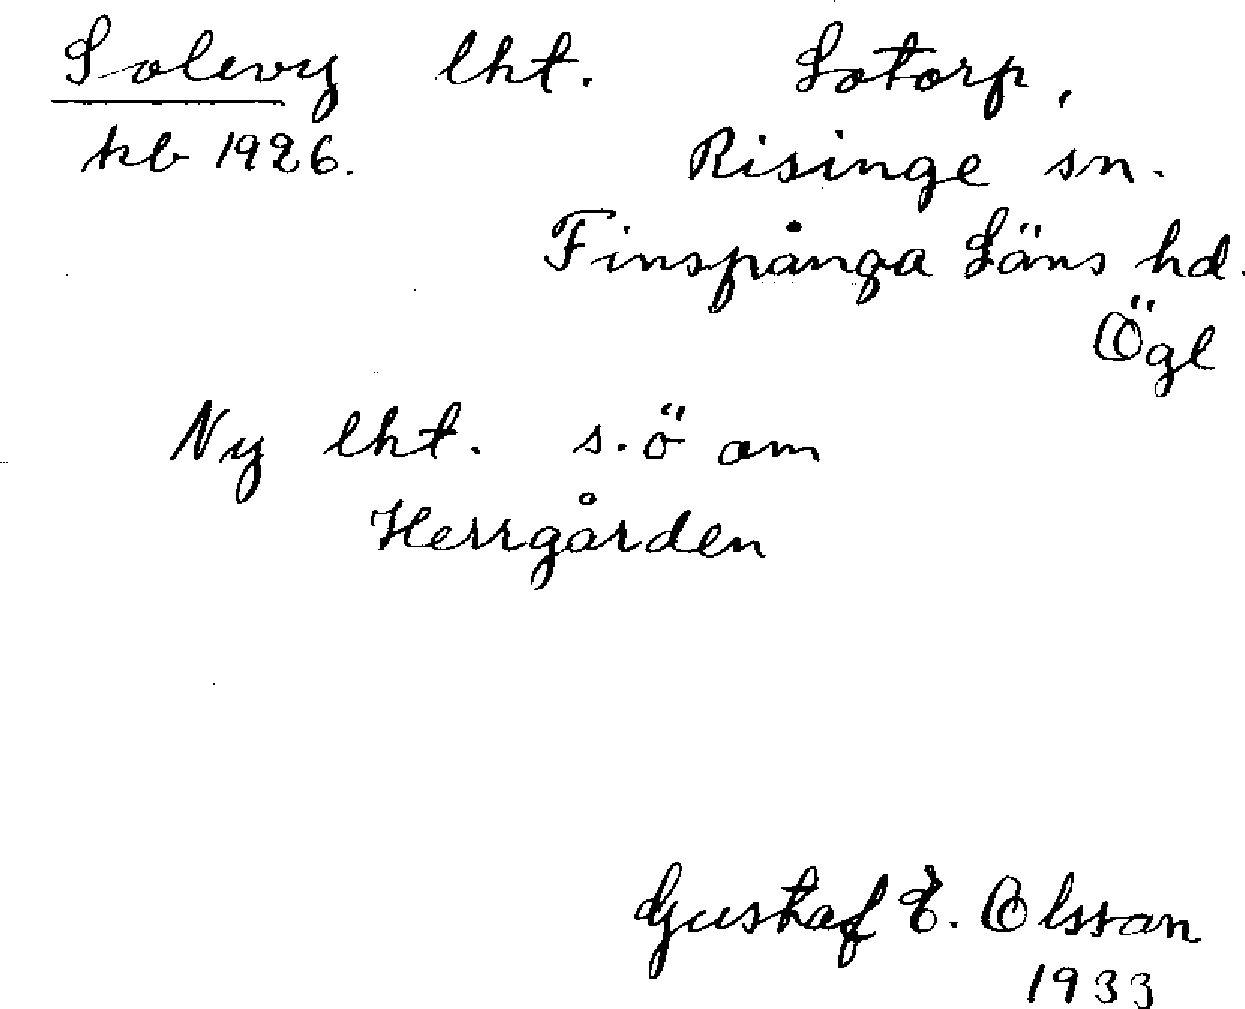 Solevy lht. Lotorp,
kb 1926. Risinge sn.
Finspånga Läns hd.
Ögl
Ny lht. s.ö om
Herrgården
Gustaf E. Olsson
1933